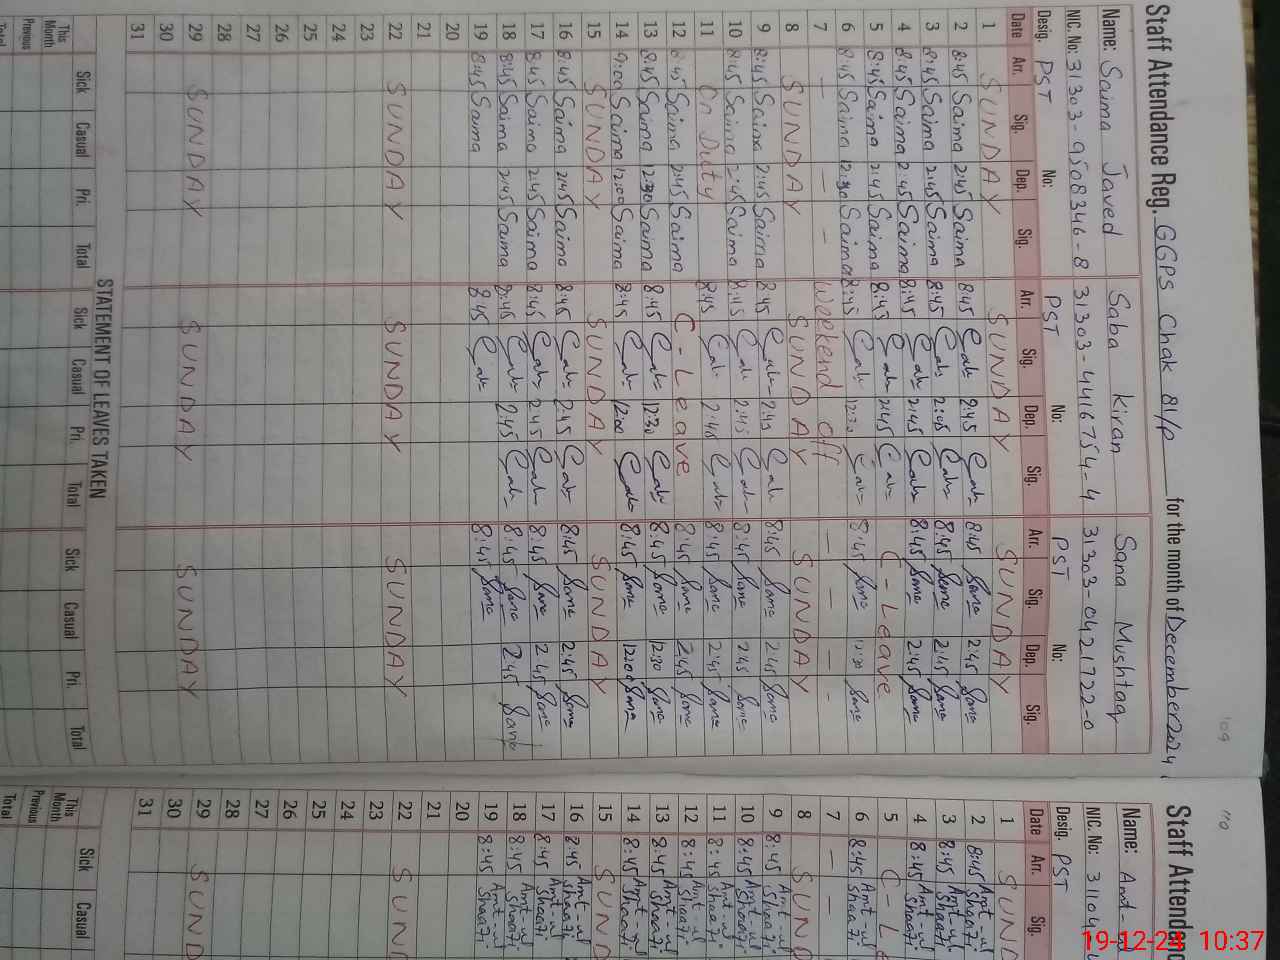 Staff Attendance Reg. GGPS Chak 81/P for the month of December 2024
109
Name: Saima Javed Saba Kiran Sana Mushtaq
NIC. No: 31303-9508346-8 31303-4416754-4 31303-0421722-0
Desig. PST No: PST No: PST No:
Date Arr. Sig. Dep. Sig. Arr. Sig. Dep. Sig. Arr. Sig. Dep. Sig.
1 SUNDAY SUNDAY SUNDAY
2 8:45 Saima 2:45 Saima 8:45 2:45 8:45 Sana 2:45 Sana
3 8:45 Saima 2:45 Saima 8:45 2:45 8:45 Sana 2:45 Sana
4 8:45 Saima 2:45 Saima 8:45 2:45 8:45 Sana 2:45 Sana
5 8:45 Saima 2:45 Saima 8:45 2:45 C-Leave
6 8:45 Saima 12:30 Saima 8:45 12:30 8:45 Sana 12:30 Sana
7 — — — Weekend off — — — -
8 SUNDAY SUNDAY SUNDAY
9 8:45 Saima 2:45 Saima 8:45 2:45 8:45 Sana 2:45 Sana
10 8:45 Saima 2:45 Saima 8:45 2:45 8:45 Sana 2:45 Sana
11 On Duty 8:45 2:45 8:45 Sana 2:45 Sana
12 8:45 Saima 2:45 Saima C-Leave 8:45 Sana 2:45 Sana
13 8:45 Saima 12:30 Saima 8:45 12:30 8:45 Sana 12:30 Sana
14 9:00 Saima 12:00 Saima 8:45 12:00 8:45 Sana 12:00 Sana
15 SUNDAY SUNDAY SUNDAY
16 8:45 Saima 2:45 Saima 8:45 2:45 8:45 Sana 2:45 Sana
17 8:45 Saima 2:45 Saima 8:45 2:45 8:45 Sana 2:45 Sana
18 8:45 Saima 2:45 Saima 8:45 2:45 8:45 Sana 2:45 Sana
19 8:45 Saima 8:45 8:45 Sana
20
21
22 SUNDAY SUNDAY SUNDAY
23
24
25
26
27
28
29 SUNDAY SUNDAY SUNDAY
30
31
STATEMENT OF LEAVES TAKEN
Sick Casual Pri. Total Sick Casual Pri. Total Sick Casual Pri. Total
This Month
Previous
Total
110
Staff Attendanc
Name: Amt-ul
NIC. No: 31104
Desig. PST
Date Arr. Sig.
1 SUND
2 8:45 Amt-ul
3 8:45 Amt-ul
4 8:45 Amt-ul
5 C-L
6 8:45 Amt-ul
7 —
8 SUND
9 8:45 Amt-ul
10 8:45 Amt-ul
11 8:45 Amt-ul
12 8:45 Amt-ul
13 8:45 Amt-ul
14 8:45 Amt-ul
15 SUND
16 8:45 Amt-ul
17 8:45 Amt-ul
18 8:45 Amt-ul
19 8:45 Amt-ul
20
21
22 SUN
23
24
25
26
27
28
29 SUND
30
31
Sick Casual
This Month
Previous
Total
19-12-24 10:37